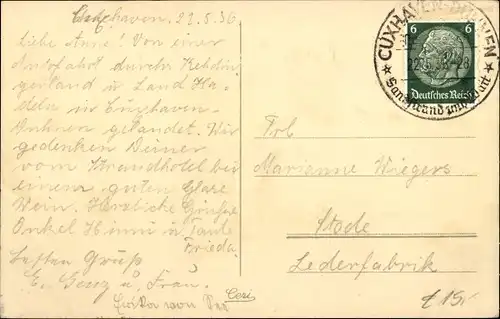 Cuxhaven. 21.5.36
Liebe Anne! Von einer
Autofahrt durch Kehdin
gerland u Land Ha-
deln in Cuxhaven-
Duhnen gelandet. Wir
gedenken Deiner
vom Strandhotel bei
einem guten Glase
Wein. Herzliche Grüsse
Onkel Hinni u Tante
Frieda.
Besten Gruß
u. Frau.
von
Frl
Marianne Wiegers
Stade
Lederfabrik
CUXHAVEN-DUHNEN
6 6
Deutsches Reich
Sandstrand und Watt